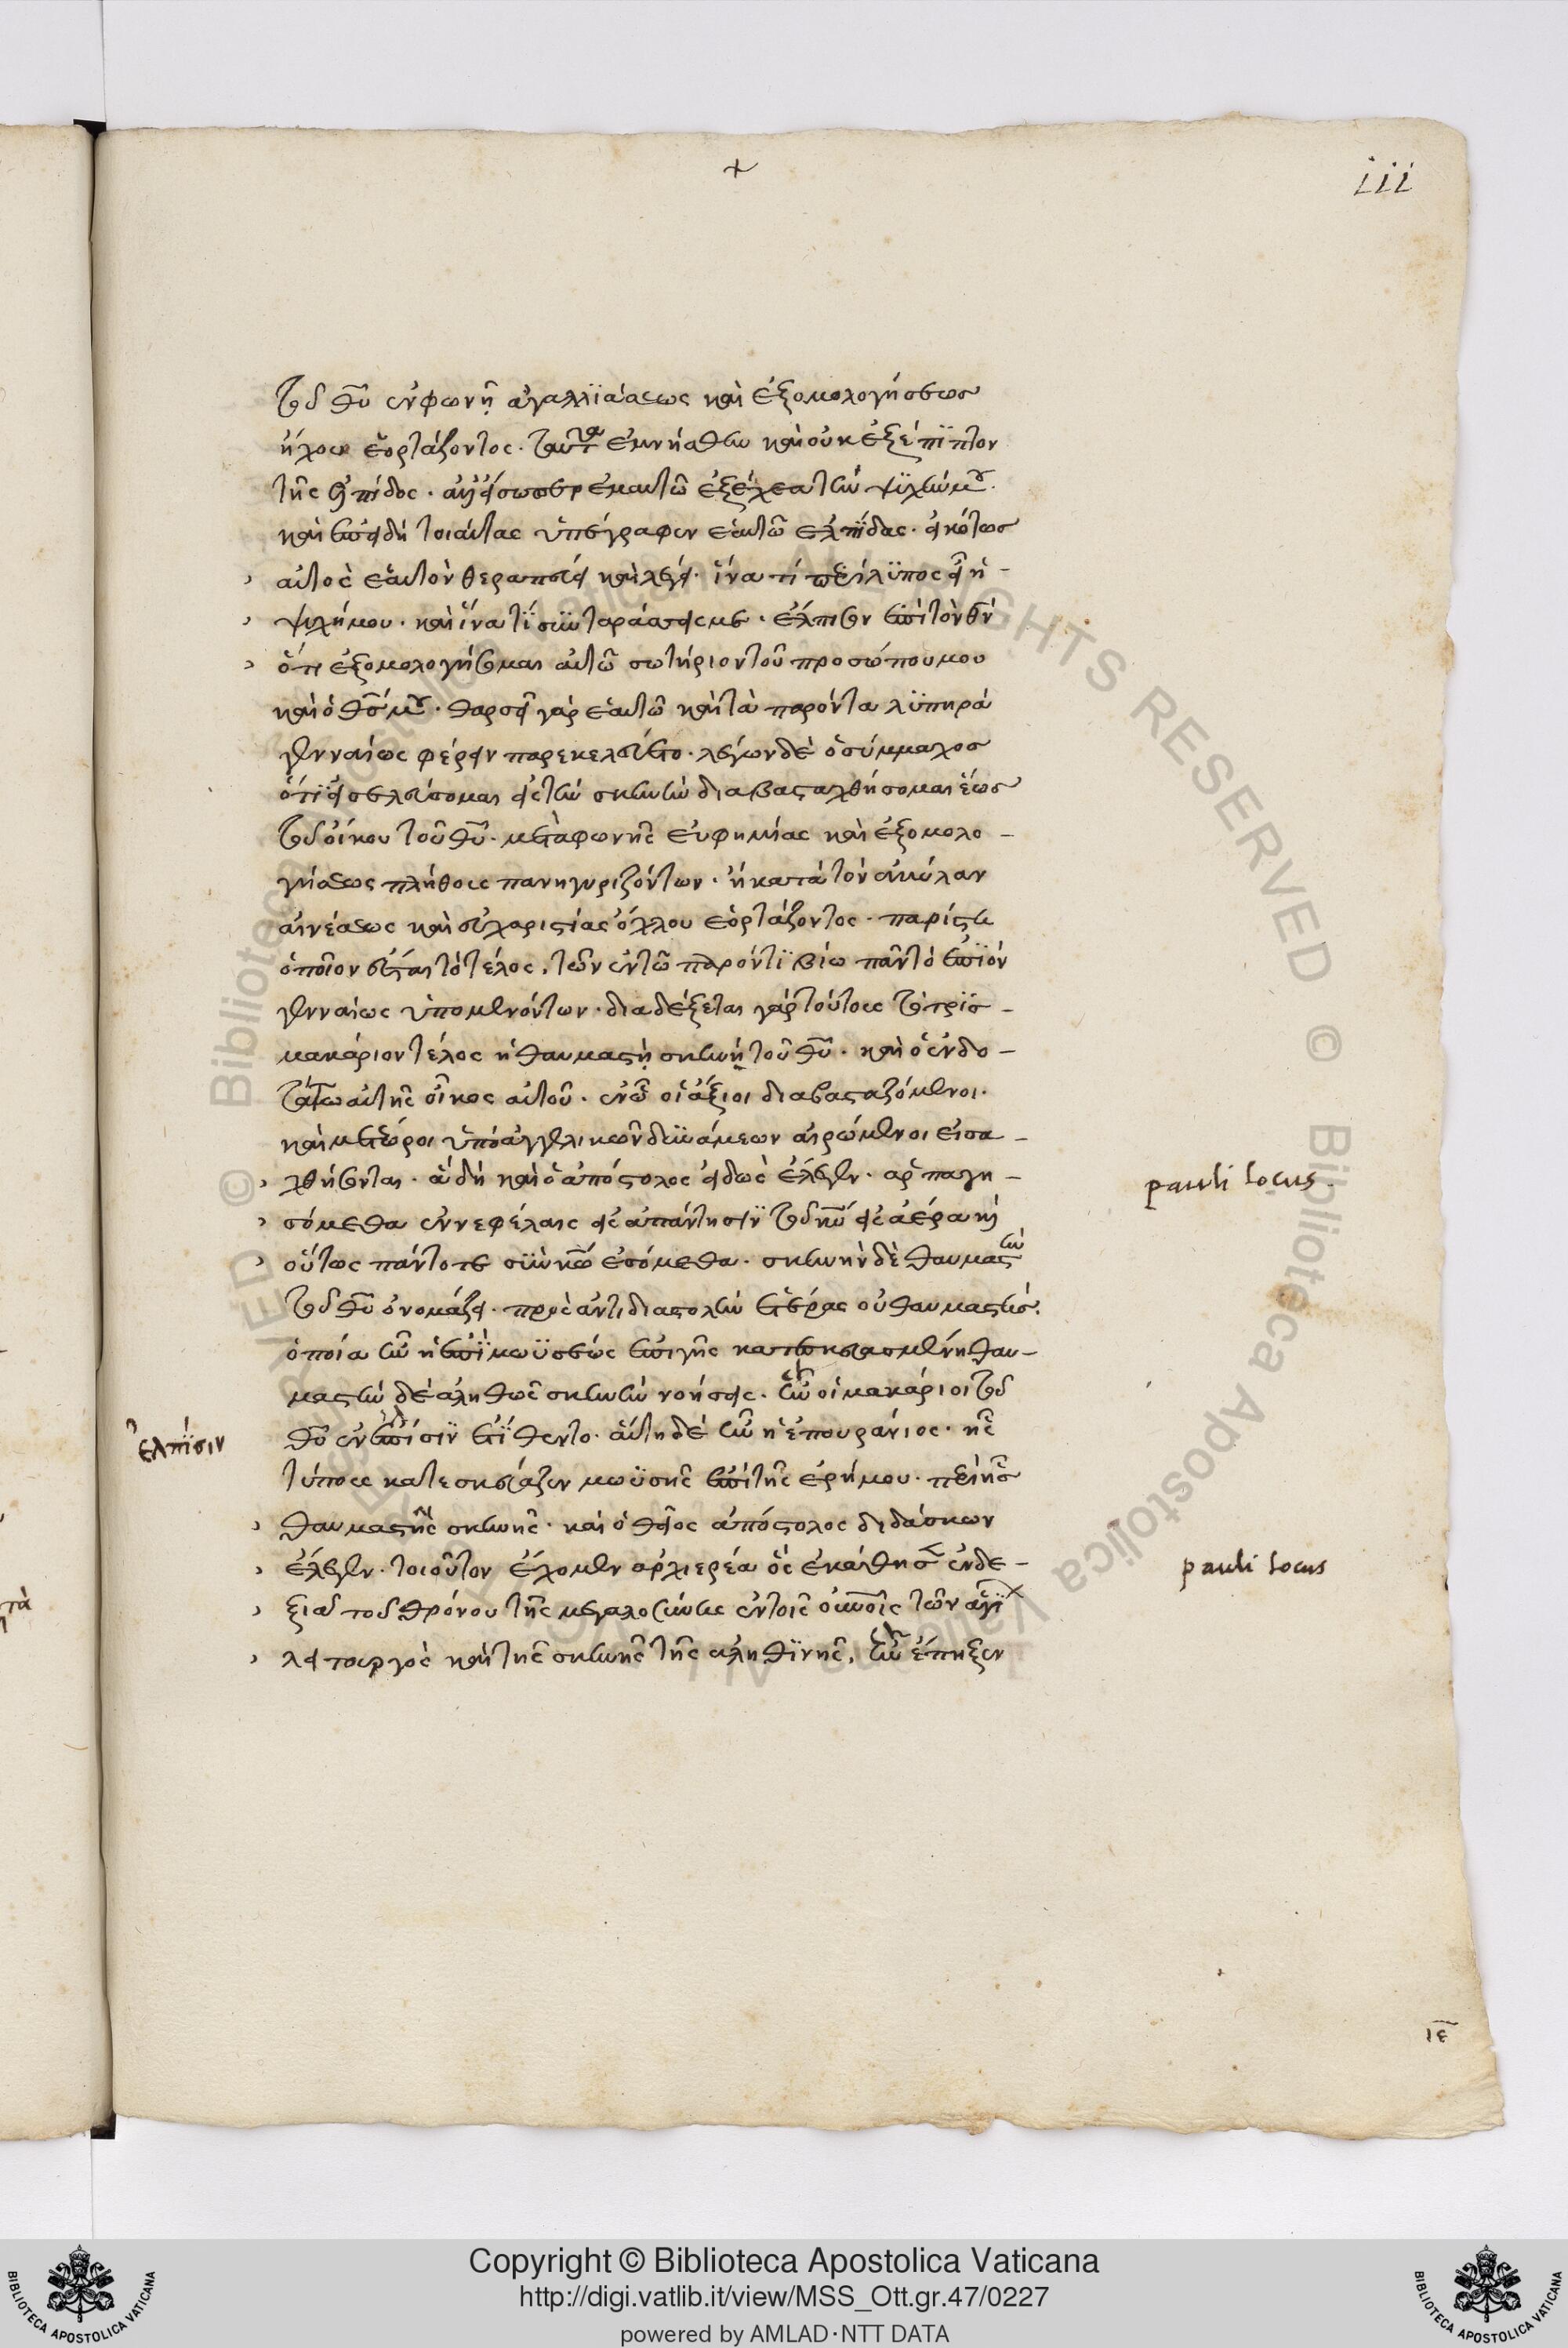 iii
τοῦ θυ ἐν φωνῇ ἀγαλλϊάσεως καὶ ἐξομολογήσεως
ἤχου ἑορτάζοντος. ταῦτα ἐμνήσθην καὶ οὐκ ἐξέπϊπτον
τῆς ἐλπίδος. ἐμαυτῶ ἐξέχεα τὴν ψϋχήν μου.
καὶ ἐπειδὴ τοιαύτας ὑπέγραφεν ἑαυτῶ ἐλπΐδας. εἰκότως
αὐτὸς ἑαυτὸν θεραπεύει καὶ λέγει. ἵνα τί περίλϋπος εἶ ἡ
ψυχή μου. καὶ ἵνα τΐ συνταράσσεις με. ἔλπισον ἐπὶ τὸν θν
ὅτι ἐξομολογήσομαι αὐτῶ σωτήριον τοῦ προσώπου μου
καὶ ὁ θσ μου. θαρσεῖ γὰρ ἑαυτῶ καὶ τὰ παρόντα λϋπηρὰ
γενναίως φέρειν παρεκελεύετο. λέγων δὲ ὁ σύμμαχος
ὅτϊ εἰσελεύσομαι εἰς τὴν σκηνὴν διαβασταχθήσομαι ἕως
τοῦ οἴκου τοῦ θυ. μετὰ φωνῆς εὐφημίας καὶ ἐξομολο-
γήσεως πλήθους πανηγυριζόντων. ἢ κατὰ τὸν ἀκύλαν
αἰνέσεως καὶ εὐχαριστίας ὄχλου ἑορτάζοντος. παρίστη
ὁποῖον ἔσται τὸ τέλος, τῶν ἐν τῶ παρόντϊ βίω πᾶν τὸ ἐπϊὸν
γενναίως ὑπομενόντων. διαδέξεται γὰρ τούτους τὸ τρϊσ-
μακάριον τέλος ἡ θαυμαστὴ σκηνὴ τοῦ θυ. καὶ ὁ ἐνδο-
τάτω αὐτῆς οἶκος αὐτοῦ. ἐν ῶ οἱ ἄξιοι διαβασταζόμενοι.
καὶ μετέωροι ὑπὸ ἀγγελικῶν δϋνάμεων αἰρώμενοι εἰσα-
χθήσονται. ἃ δὴ καὶ ὁ ἀπόστολος εἰδὼς ἔλεγεν. ἁρπαγη-
σόμεθα ἐν νεφέλαις εἰς ἀπάντησϊν τοῦ κυ εἰς ἀέρα καὶ
οὕτως πάντοτε σϋν κω ἐσόμεθα. σκηνὴν δὲ θαυμαστὴν
τοῦ θυ ὀνομάζει. πρὸς ἀντιδιαστολὴν ἑτέρας οὐ θαυμαστῆσ.
ὁποία ἦν ἡ ἐπϊ μωϋσέως ἐπὶ γῆς κατεσκευασμένη θαυ-
μαστὴν δὲ ἀληθῶς σκηνὴν νοήσεις. ἐφ' ἣν οἱ μακάριοι τοῦ
θυ ἐν ἐλπίσϊν ἐτΐθεντο. αὕτη δὲ ἦν ἡ ἐπουράνιος. ἧς
τύπους κατεσκεύαζεν μωϋσῆς ἐπὶ τῆς ἐρήμου. περὶ ἧσ
θαυμαστῆς σκηνῆς. καὶ ὁ θεῖος ἀπόστολος διδάσκων
ἔλεγεν. τοιοῦτον ἔχομεν ἀρχιερέα ὃς ἐκάθησεν ἐν δε-
ξιᾶ τοῦ θρόνου τῆς μεγαλοσύνης ἐν τοῖς οὐνοῖς τῶν ἁγϊ
λειτουργὸς καὶ τῆς σκηνῆς τῆς ἀληθϊνῆς, ἣν ἔπηξεν
pauli locus.
ἐλπΐσιν
pauli locus
ιε
Copyright © Biblioteca Apostolica Vaticana
http://digi.vatlib.it/view/MSS_Ott.gr.47/0227
powered by AMLAD·NTT DATA
BIBLIOTECA APOSTOLICA VATICANA
BIBLIOTECA APOSTOLICA VATICANA